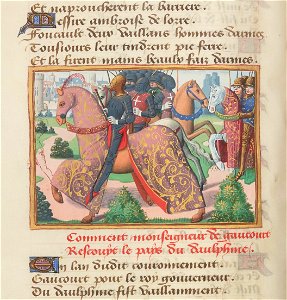 Et naprouchèrent la barriere
Messire ambroise de lorre
Foucault deux vaillans hommes darmes
Tousiours leur tindrent pie ferre
Et la firent mains beaulx faiz darmes
Comment monseigneur de gaucourt
Rescouyt le pays du daulphine
En lan dudit couronnement
Gaucourt pour le roy gouverneur
Du daulphine fist vaillamment